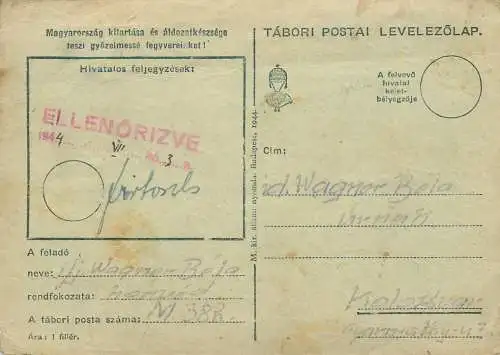 Magyarország kitartása és áldozatkészsége
teszi győzelmessé fegyvereinket!
Hivatalos feljegyzések:
ELLENŐRIZVE
1944 VII hó 3. n.
A feladó
neve: ifj. Wagner Béla
rendfokozata:
A tábori posta száma: M. 388.
Ára: 1 fillér.
M. kir. állami nyomda, Budapest, 1944.
TÁBORI POSTAI LEVELEZŐLAP.
A felvevő
hivatal
kelet-
bélyegzője
Cím:
id. Wagner Béla
Kolozsvár